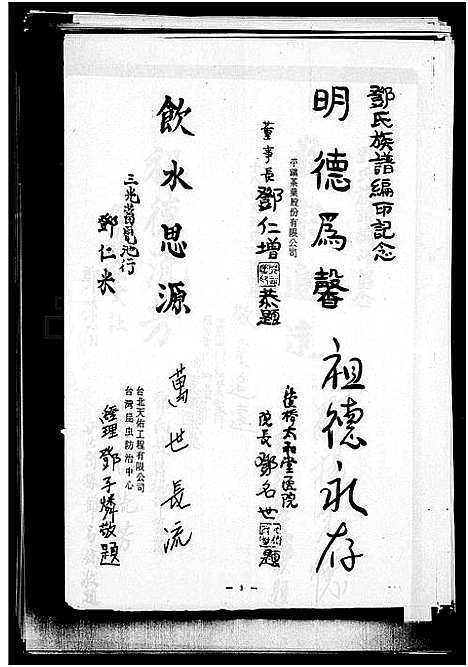 鄧氏族譜編印記念
明德為馨
平鎮茶業股份有限公司
董事長鄧仁增恭題
祖德永存
板橋太和堂医院
院長鄧名世題
飲水思源
三光蓄電池行
鄧仁米
萬世長流
台北天佑工程有限公司
台灣昆虫防治中心
經理鄧子燐敬題
— 3 —